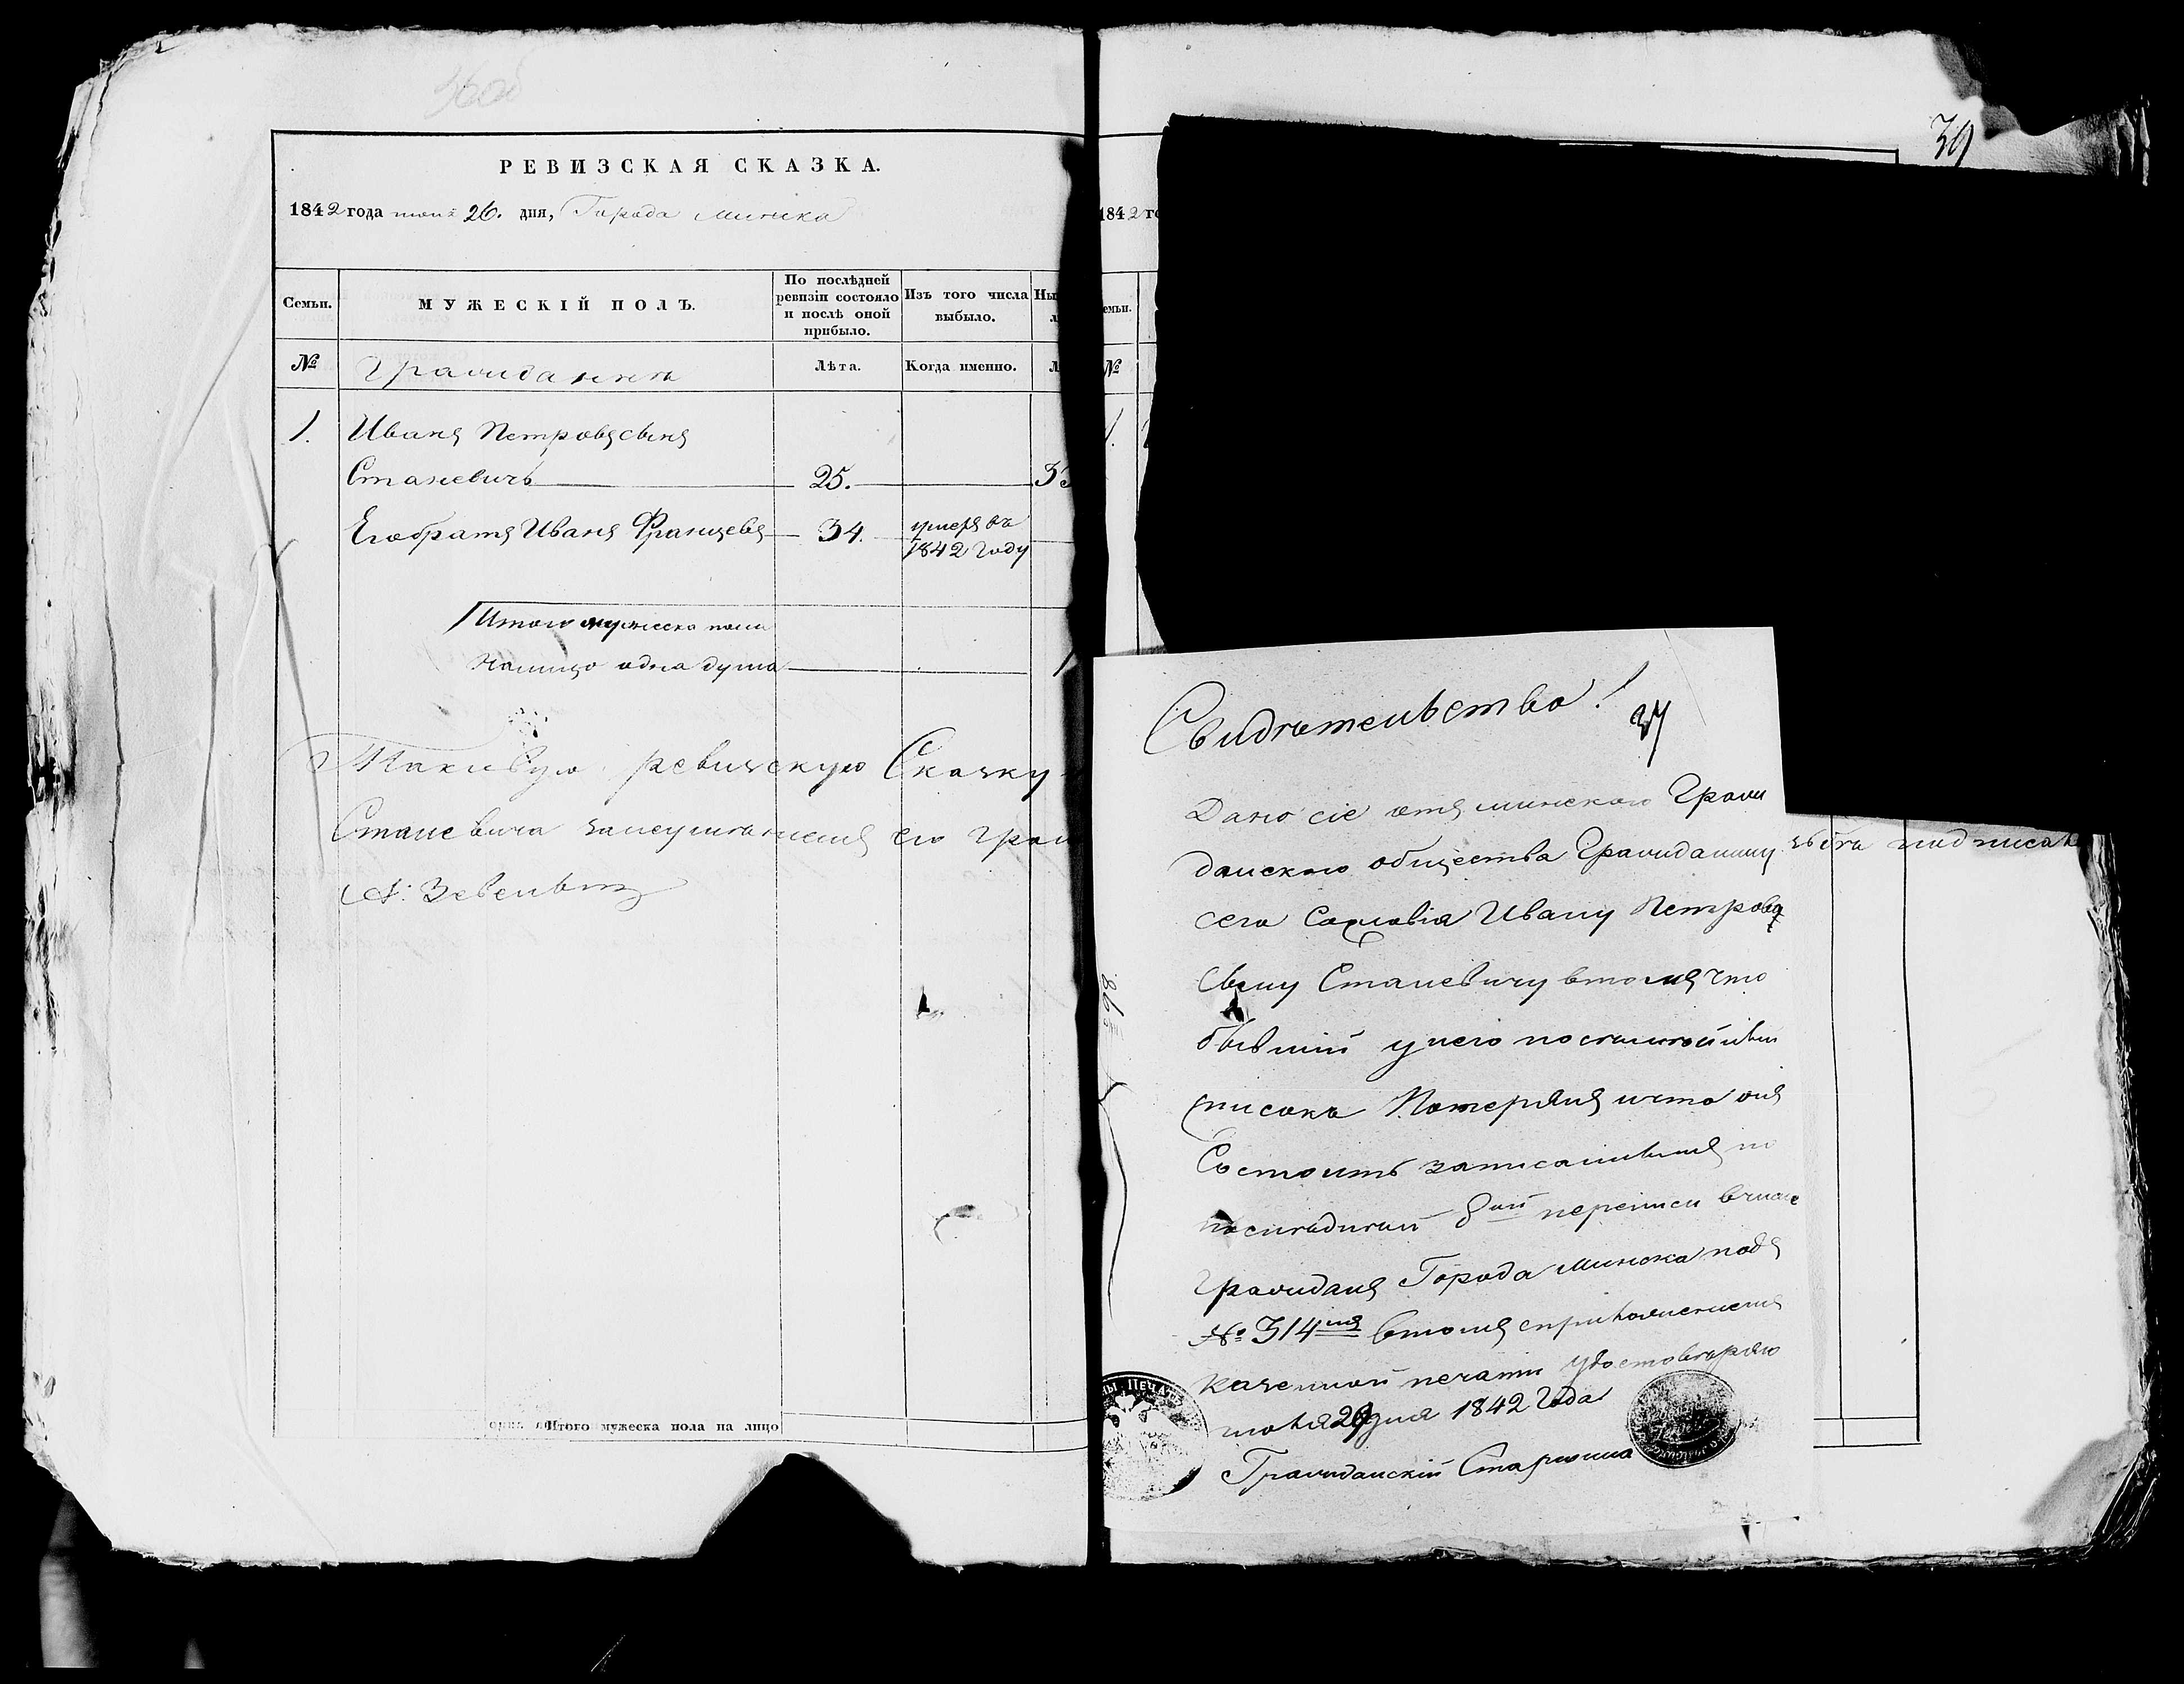 РЕВИЗСКАЯ СКАЗКА.
1842 года июня 26. дня, Города Минска
Семьи.
МУЖЕСКІЙ ПОЛЪ.
По послѣдней
ревизіи состояло
и послѣ оной
прибыло.
Изъ того числа
выбыло.
Ны
№
Граждане
Лѣта.
Когда именно.
Л
1.
Иванъ Петровъ сынъ
Станевичъ
25.
33
Его братъ Иванъ Францевъ
34.
умеръ въ
1842 году
Итого мужеска пола
налицо одна душа
1
Таковую ревизскую Сказку
Станевича за неуменіемъ его грам
Итого мужеска пола на лицо
39
1842 го
емьи.
№
1.
Свидѣтельство!
37
Дано сіе отъ минского Граж
данского общества Гражданину
сего Сословія Ивану Петрову
сыну Станевичу втомъ что
бывшій у него посемейный
списокъ Потерянъ и что онъ
Состоитъ записаннымъ по
послѣдней 8ой переписи вчисле
гражданъ Города Минска подъ
№ 314мъ втомъ сприложеніемъ
казенной печати удостовѣряю
июня 26 дня 1842 Года
Гражданскій Старшина
подписалъ
98.